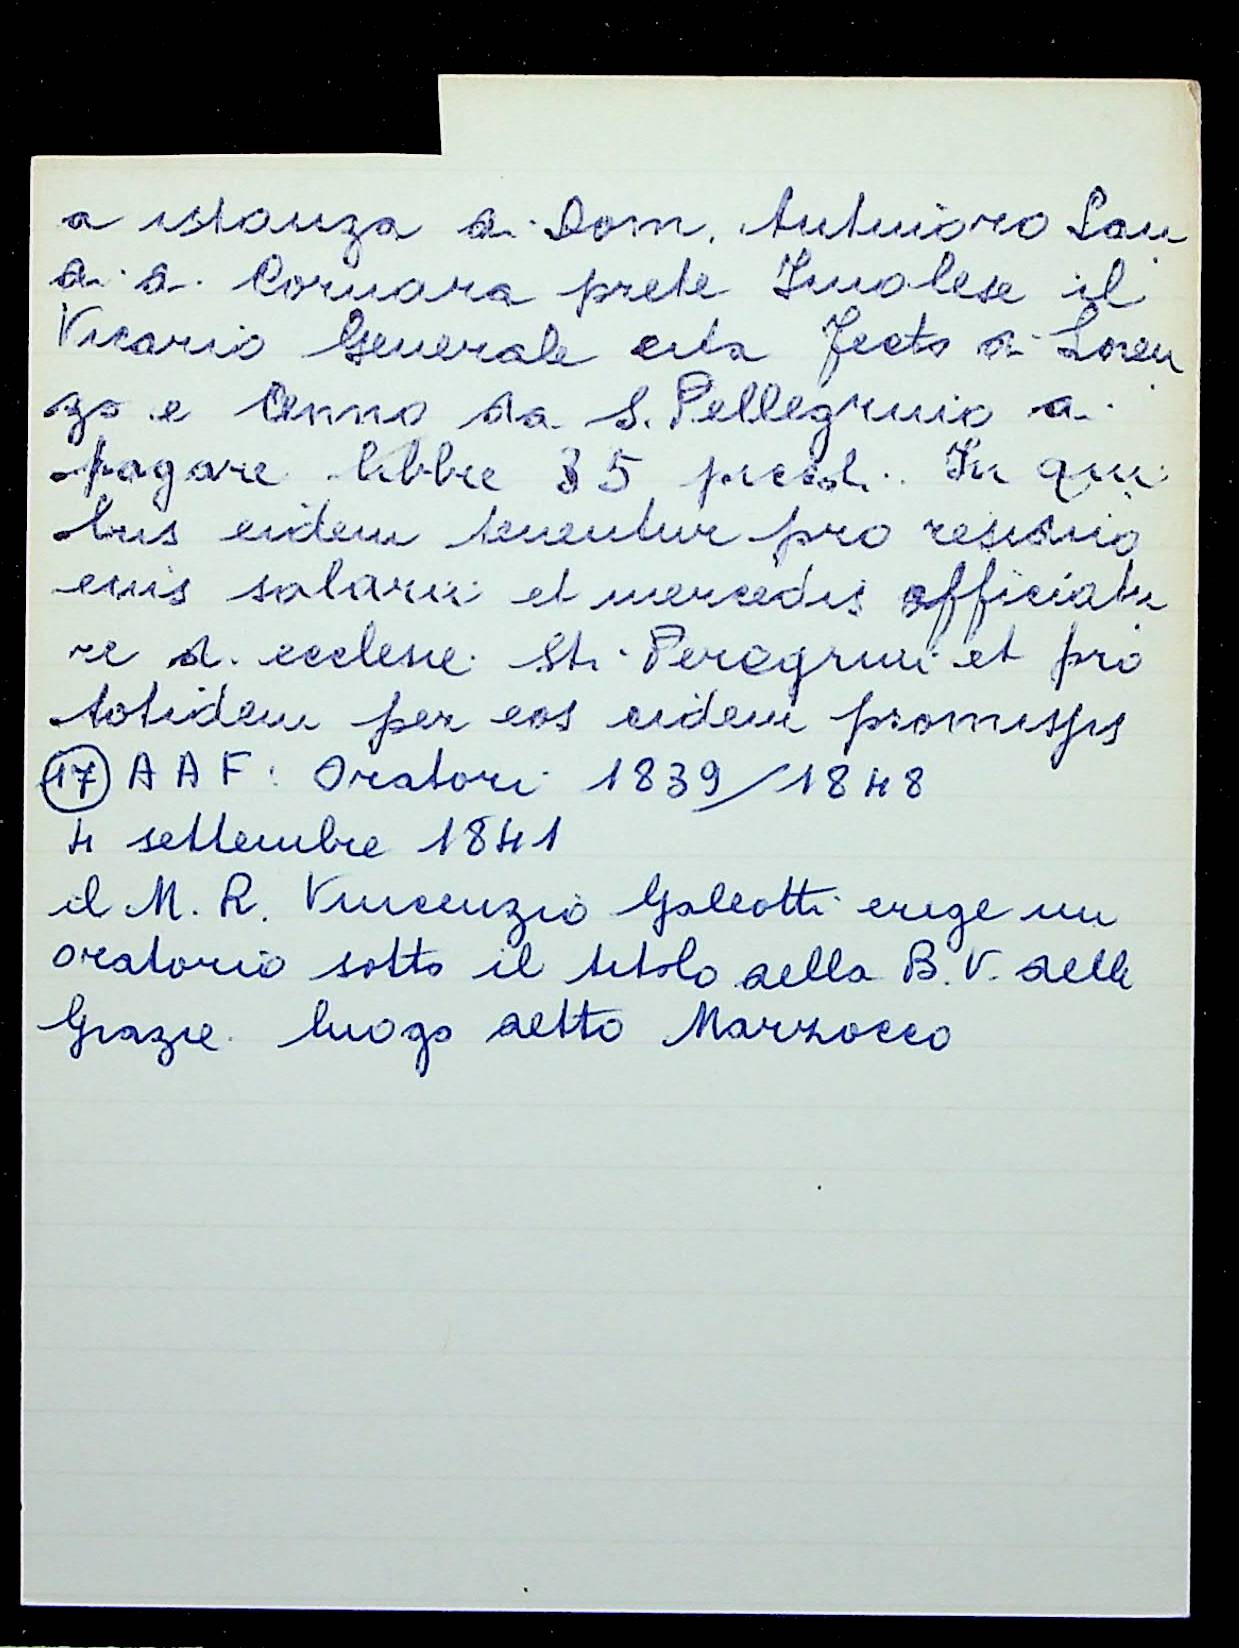 a istanza di Dom. Antonioro Lau
di d. Cornara prete Imolese il
Vicario Generale cita Jecto di Loren
zo e Cenno da S. Pellegrino a
pagare libbre 35 piccoli. In qui
bus eidem tenentur pro residuio
euis salarii et mercedis officiatu
re d. ecclesie Sti Peregrini et pro
totidem per eos eidem promissis
17 A A F: Oratori 1839/1848
4 settembre 1841
il M. R. Vincenzio Galeotti erige un
oratorio sotto il titolo della B. V. delle
Grazie. luogo detto Marzocco